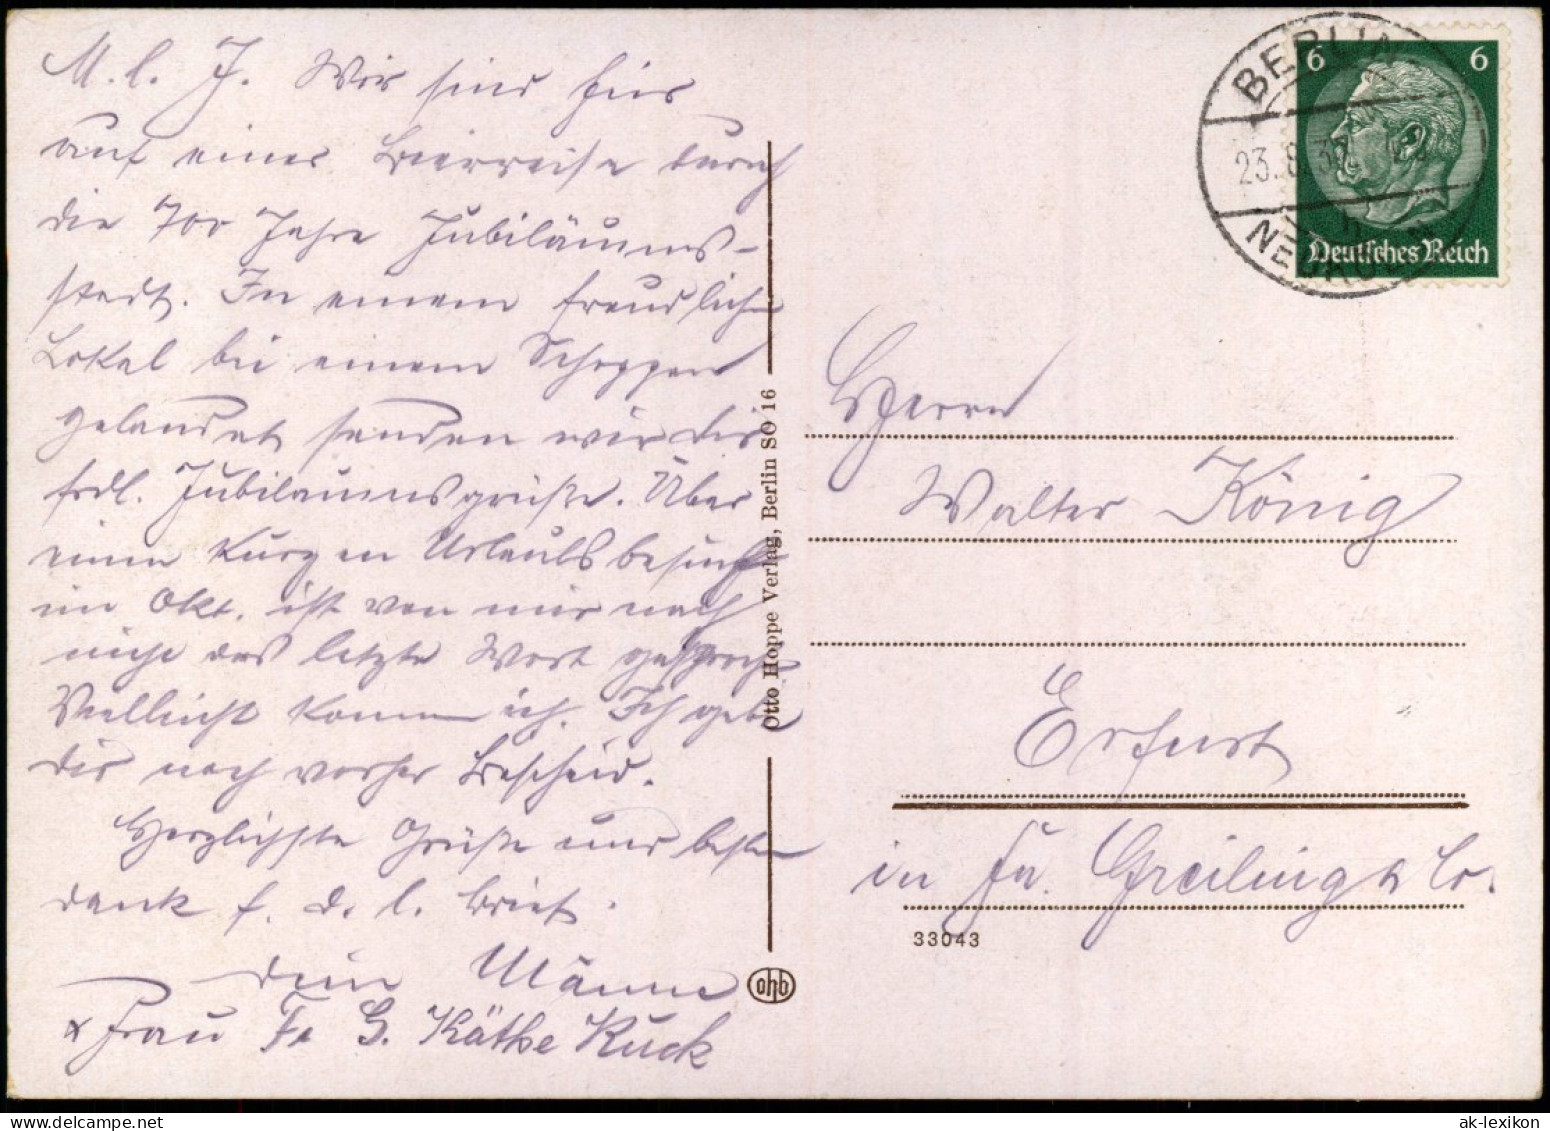 M. l. J. Wir sind hier
auf einer Bierreise durch
die 700 Jahre Jubiläums-
stadt. In einem freundlich
Lokal bei einem Schoppen
gelandet senden wir dir
frdl. Jubiläumsgrüße. Über
einen kurzen Urlaubsbesuch
im Okt. ist von mir noch
nicht das letzte Wort gesproch.
Vielleicht komm ich. Ich gebe
dir noch vorher Bescheid.
Herzlichste Grüße und besten
dank f. d. l. Brief.
dein Männe
& Frau Fr. G. Käthe Kuck
Otto Hoppe Verlag, Berlin SO 16
ohb
BERLIN
23.8.3
NEUKÖLLN
6 6
Deutsches Reich
Herrn
Walter König
Erfurt
in Fa. Greiling & Co.
33043
ak-lexikon